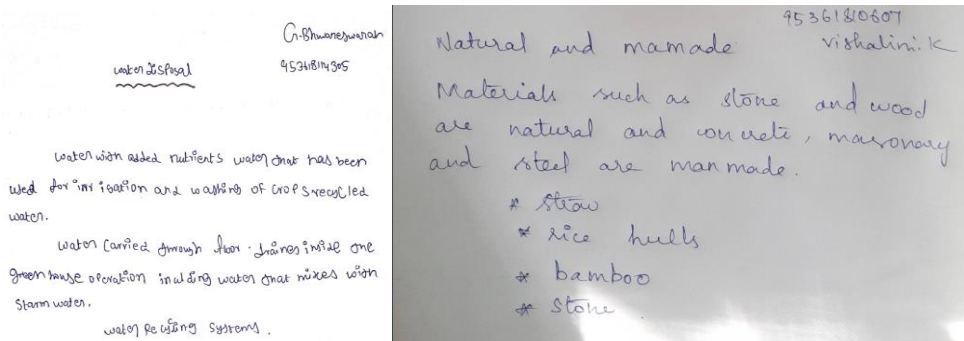 G.Bhuvaneswarah
water disposal
95361814305
water with added nutrients water that has been
used for irrigation and washing of crops recycled
water.
water carried through floor drains inside the
green house operation inculding water that mixes with
starm water.
water Recycling systems.
95361810607
Natural and mamade
vishalini.K
Materials such as stone and wood
are natural and concrete, masonary
and steel are manmade.
* straw
* rice hulls
* bamboo
* stone